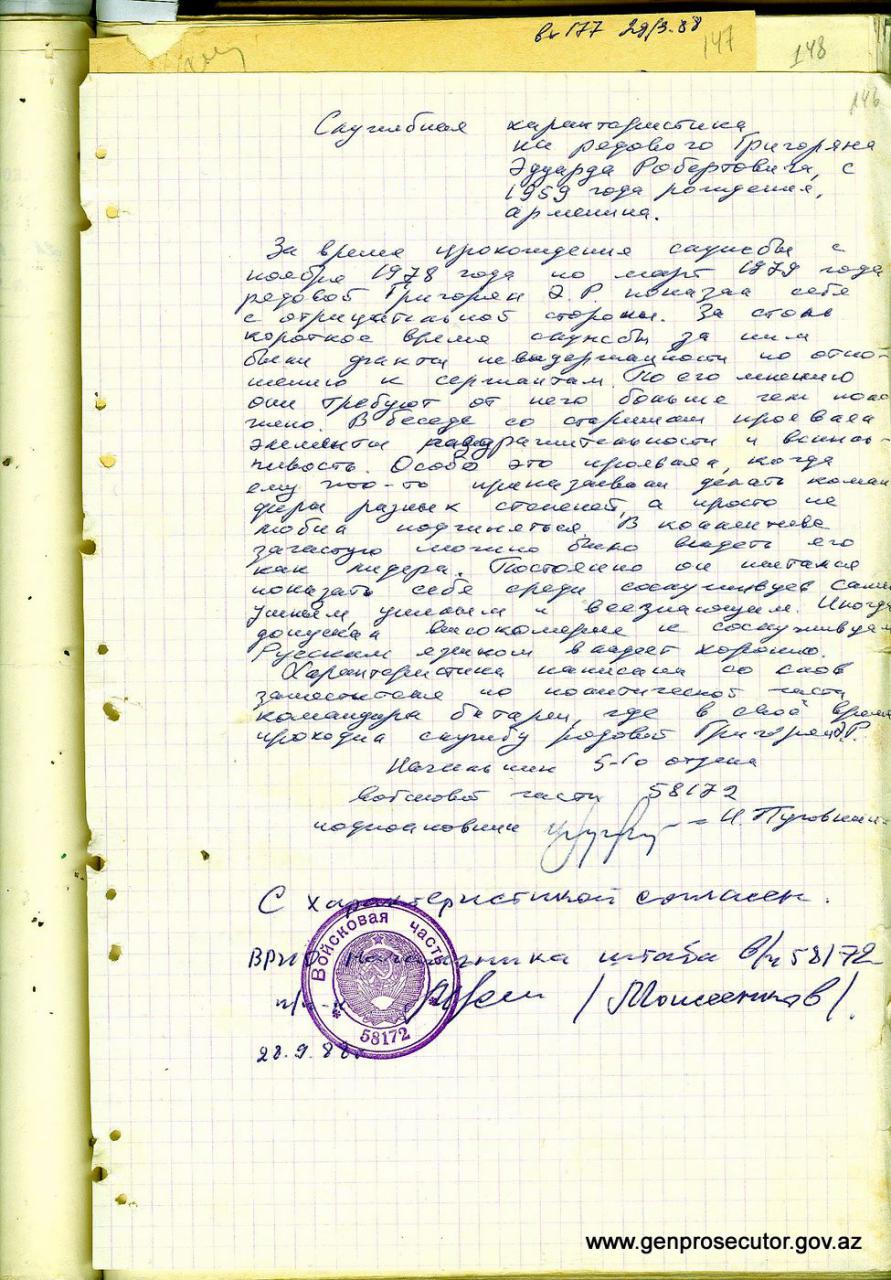 вх 177 29/3.88
147
148
146
Служебная характеристика
на рядового Григоряна
Эдуарда Робертовича, с
1959 года рождения,
армянина.
За время прохождения службы с
ноября 1978 года по март 1979 года
рядовой Григорян Э.Р. показал себя
с отрицательной стороны. За столь
короткое время службы за ним
были факты невыдержанности по отно-
шению к сержантам. По его мнению
они требуют от него больше чем поло
жено. В беседе со старшим проявлял
элементы раздражительности и вспыль-
чивость. Особо это проявлял, когда
ему что-то приказывали делать коман
диры разных степеней, а просто не
любил подчиняться. В коллективе
зачастую можно было видеть его
как лидера. Постоянно он пытался
показать себя среди сослуживцев самым
умным и всезнающим. Иногда
допускал высокомерие к сослуживцам
Русским языком владеет хорошо.
Характеристика написана со слов
заместителя по политической части
командира батареи, где в своё время
проходил службу рядовой Григорян Э.Р.
Начальник 5-го отдела
войсковой части 58172
подполковник
С характеристикой согласен.
ВРИО начальника штаба в/ч 58172
п/п-к /Моисеенков/.
Войсковая часть
58172
28.9.88г
www.genprosecutor.gov.az